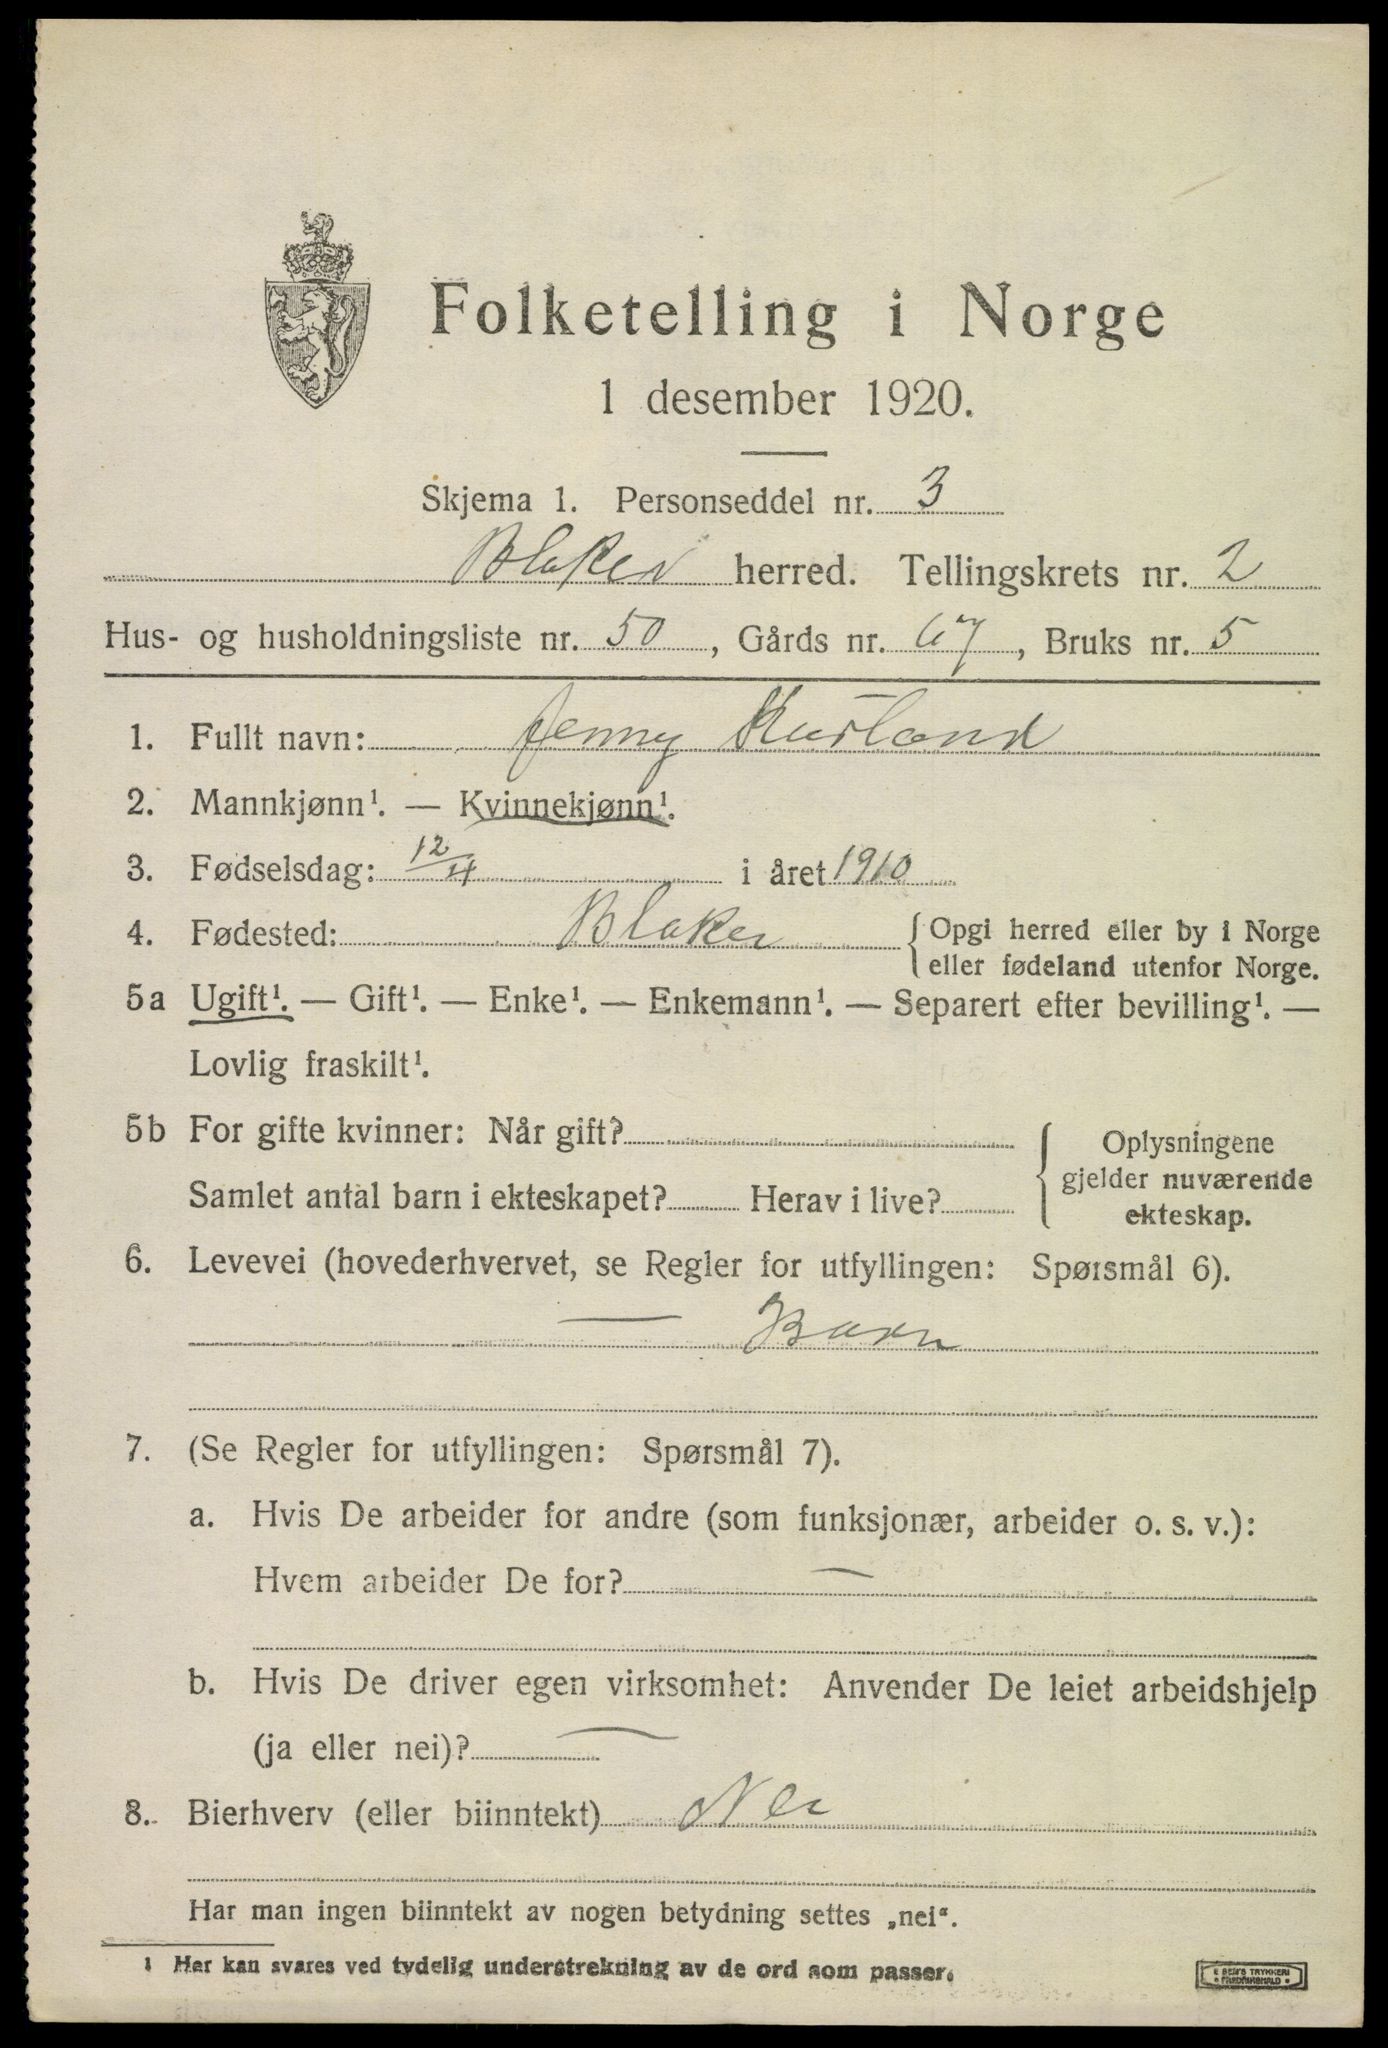 Folketelling i Norge
1 desember 1920.
Skjema 1. Personseddel nr. 3
Blaker herred. Tellingskrets nr. 2
Hus- og husholdningsliste nr. 50, Gårds nr. 67, Bruks nr. 5
1. Fullt navn: Jenny Kurland
2. Mannkjønn¹. — Kvinnekjønn¹.
3. Fødselsdag: 12/4 i året 1910
4. Fødested: Blaker { Opgi herred eller by i Norge
eller fødeland utenfor Norge.
5a Ugift¹. — Gift¹. — Enke¹. — Enkemann¹. — Separert efter bevilling¹. —
Lovlig fraskilt¹.
5b For gifte kvinner: Når gift?
Samlet antal barn i ekteskapet? Herav i live?
{ Oplysningene
gjelder nuværende
ekteskap.
6. Levevei (hovederhvervet, se Regler for utfyllingen: Spørsmål 6).
— Barn
7. (Se Regler for utfyllingen: Spørsmål 7).
a. Hvis De arbeider for andre (som funksjonær, arbeider o. s. v.):
Hvem arbeider De for? —
b. Hvis De driver egen virksomhet: Anvender De leiet arbeidshjelp
(ja eller nei)? —
8. Bierhverv (eller biinntekt) Nei
Har man ingen biinntekt av nogen betydning settes „nei“.
1 Her kan svares ved tydelig understrekning av de ord som passer.